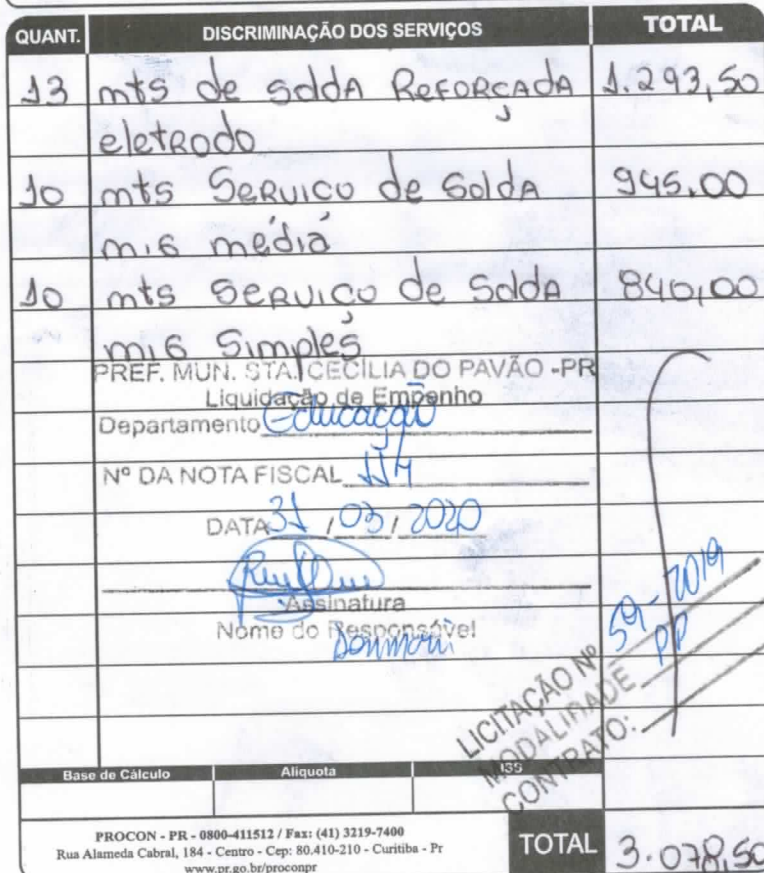 QUANT. DISCRIMINAÇÃO DOS SERVIÇOS TOTAL
13 mts de soldA ReFORÇADA 1.293,50
eletRodo
10 mts SeRviço de SoldA 945,00
mi6 média
10 mts SeRviço de SoldA 840,00
mi6 Simples
PREF. MUN. STA. CECÍLIA DO PAVÃO -PR
Liquidação de Empenho
Departamento Educação
Nº DA NOTA FISCAL 114
DATA 31 / 03 / 2020
Assinatura
Nome do Responsável
LICITAÇÃO Nº 59-2019
MODALIDADE PP
CONTRATO:
Base de Cálculo Alíquota ISS
PROCON - PR - 0800-411512 / Fax: (41) 3219-7400
Rua Alameda Cabral, 184 - Centro - Cep: 80.410-210 - Curitiba - Pr
www.pr.go.br/proconpr
TOTAL 3.078,50